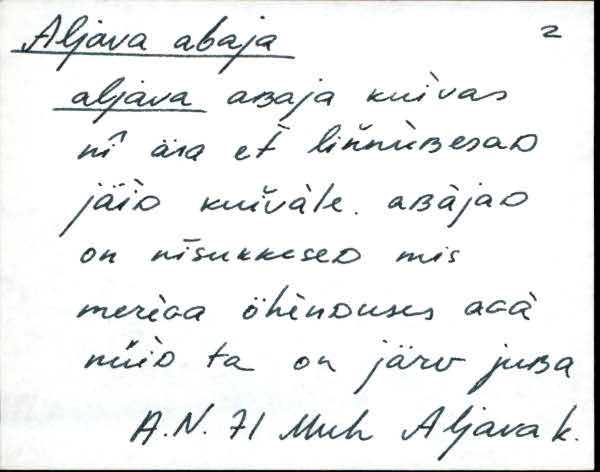 Aljava abaja 2
aljava aʙaja kuìvas
nî äia et̀ lin̆nùʙesaᴅ
jäìᴅ kuĭvàle. aʙàjaᴅ
on nīsukkeseᴅ mis
merèɢa öhènᴅuses aɢà
nüiᴅ ta on järv juʙa
A.N. 71 Muh Aljava k.